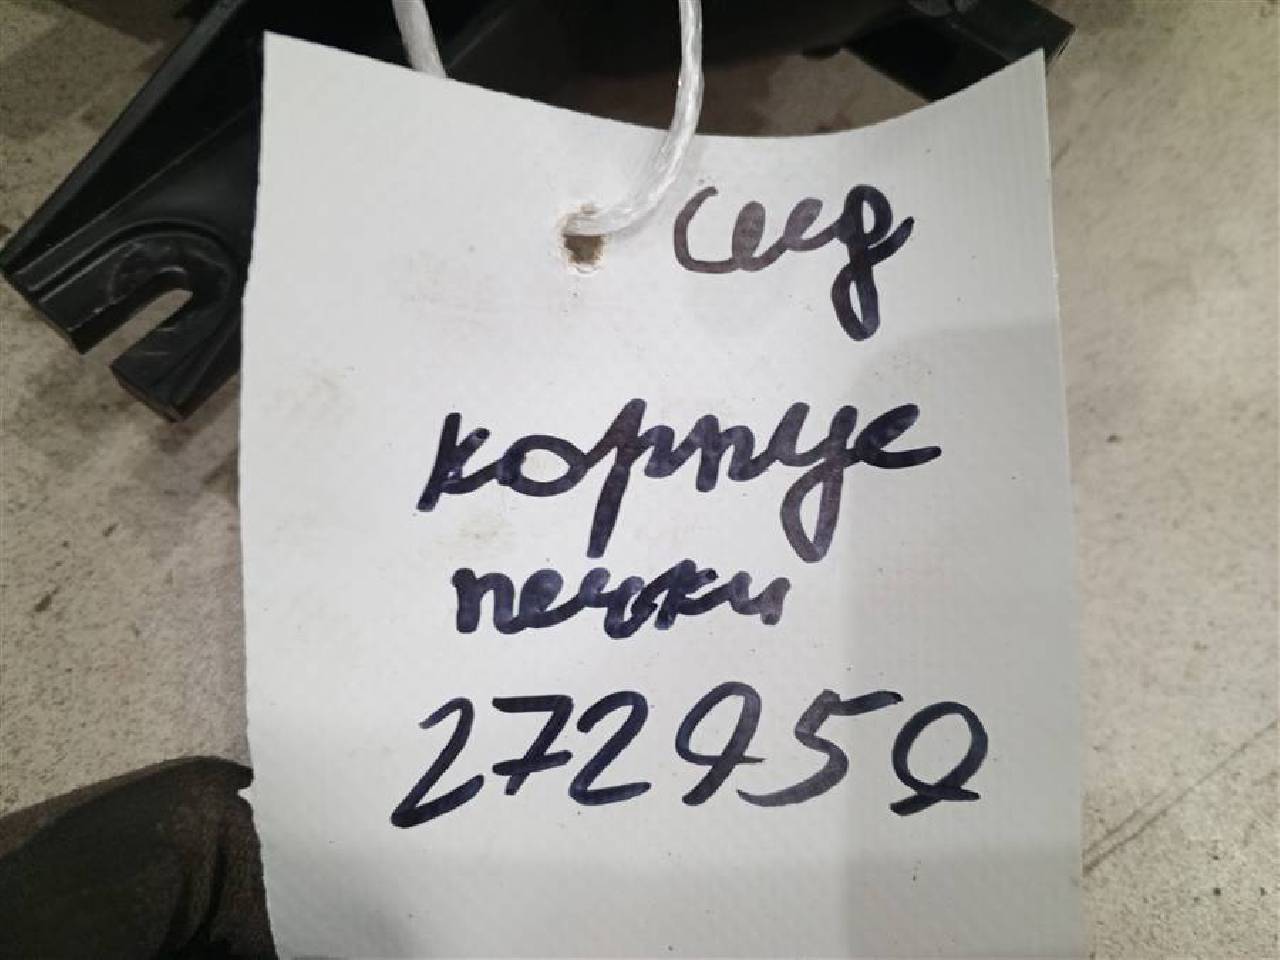 сид
корпус
печки
272959